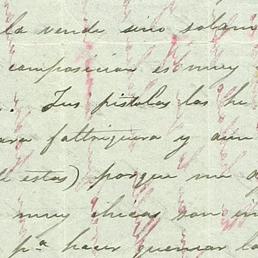 la vende sino
composicion es muy
. Tus pistolas las he
para faltriquera y aun
estas) porque me
muy chicas son
pa. hacer quemar la